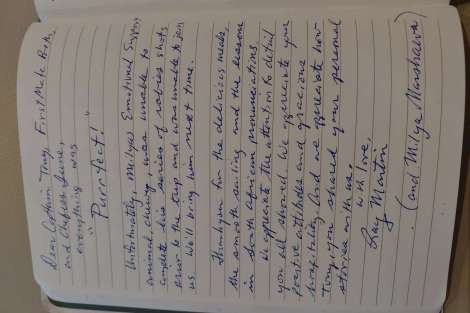 Dear Captain Tony, First Mate Beth,
and Chef Anne,
everything was
"Purrrfect!"
Unfortunately, Milya's Emotional Support
animal, Chewy, was unable to
complete his series of rabies shots
prior to the trip and was unable to join
us. We'll bring him next time.
Thank you for the delicious meals,
the smooth sailing and the lessons
in South African pronunciations.
We appreciate the attention to detail
you all showed. We appreciate your
positive attitudes and gracious
hospitality. And we appreciate how
Tony, you shared your personal
stories with us.
With love,
Ray Martin
(and Milya Marshalva)